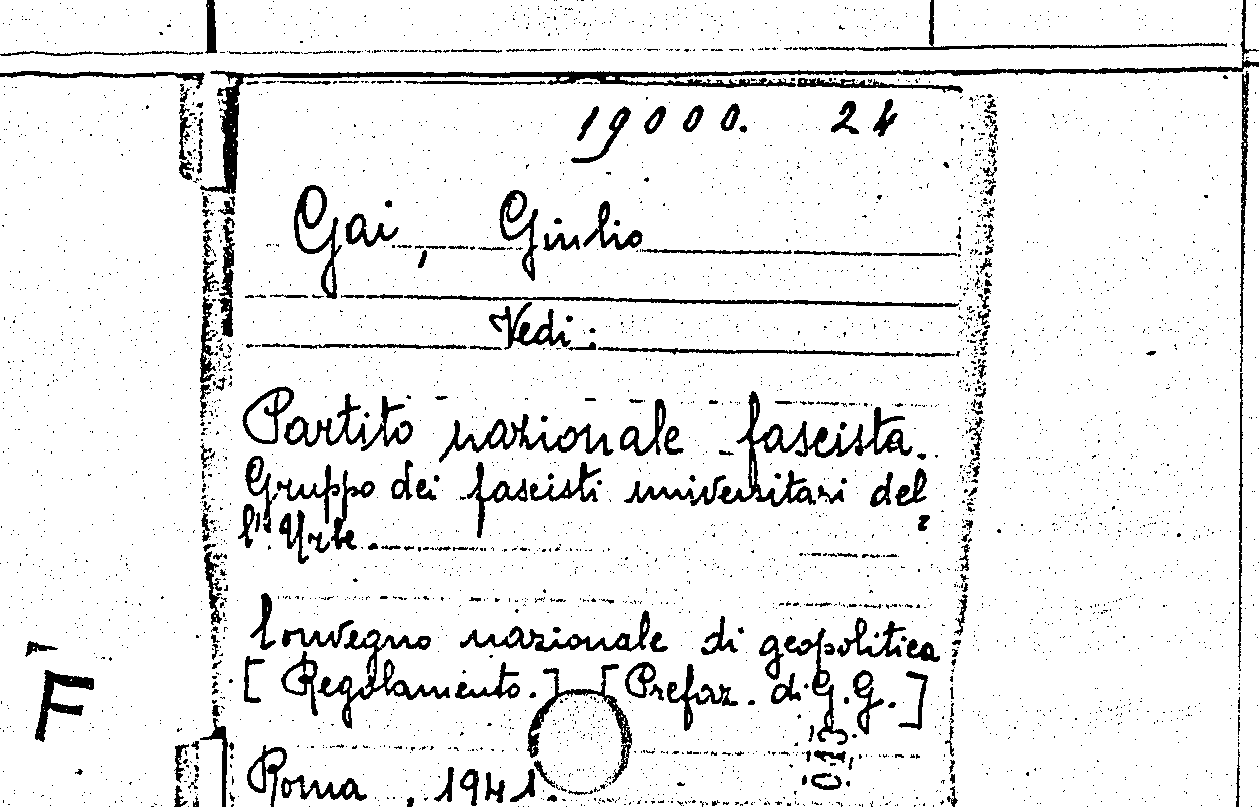 19000. 24
Gai, Giulio
Vedi:
Partito nazionale fascista.
Gruppo dei fascisti universitari del
l'Urbe.
Convegno nazionale di geopolitica
[Regolamento.] [Prefaz. di G.G.]
F
Roma, 1941.